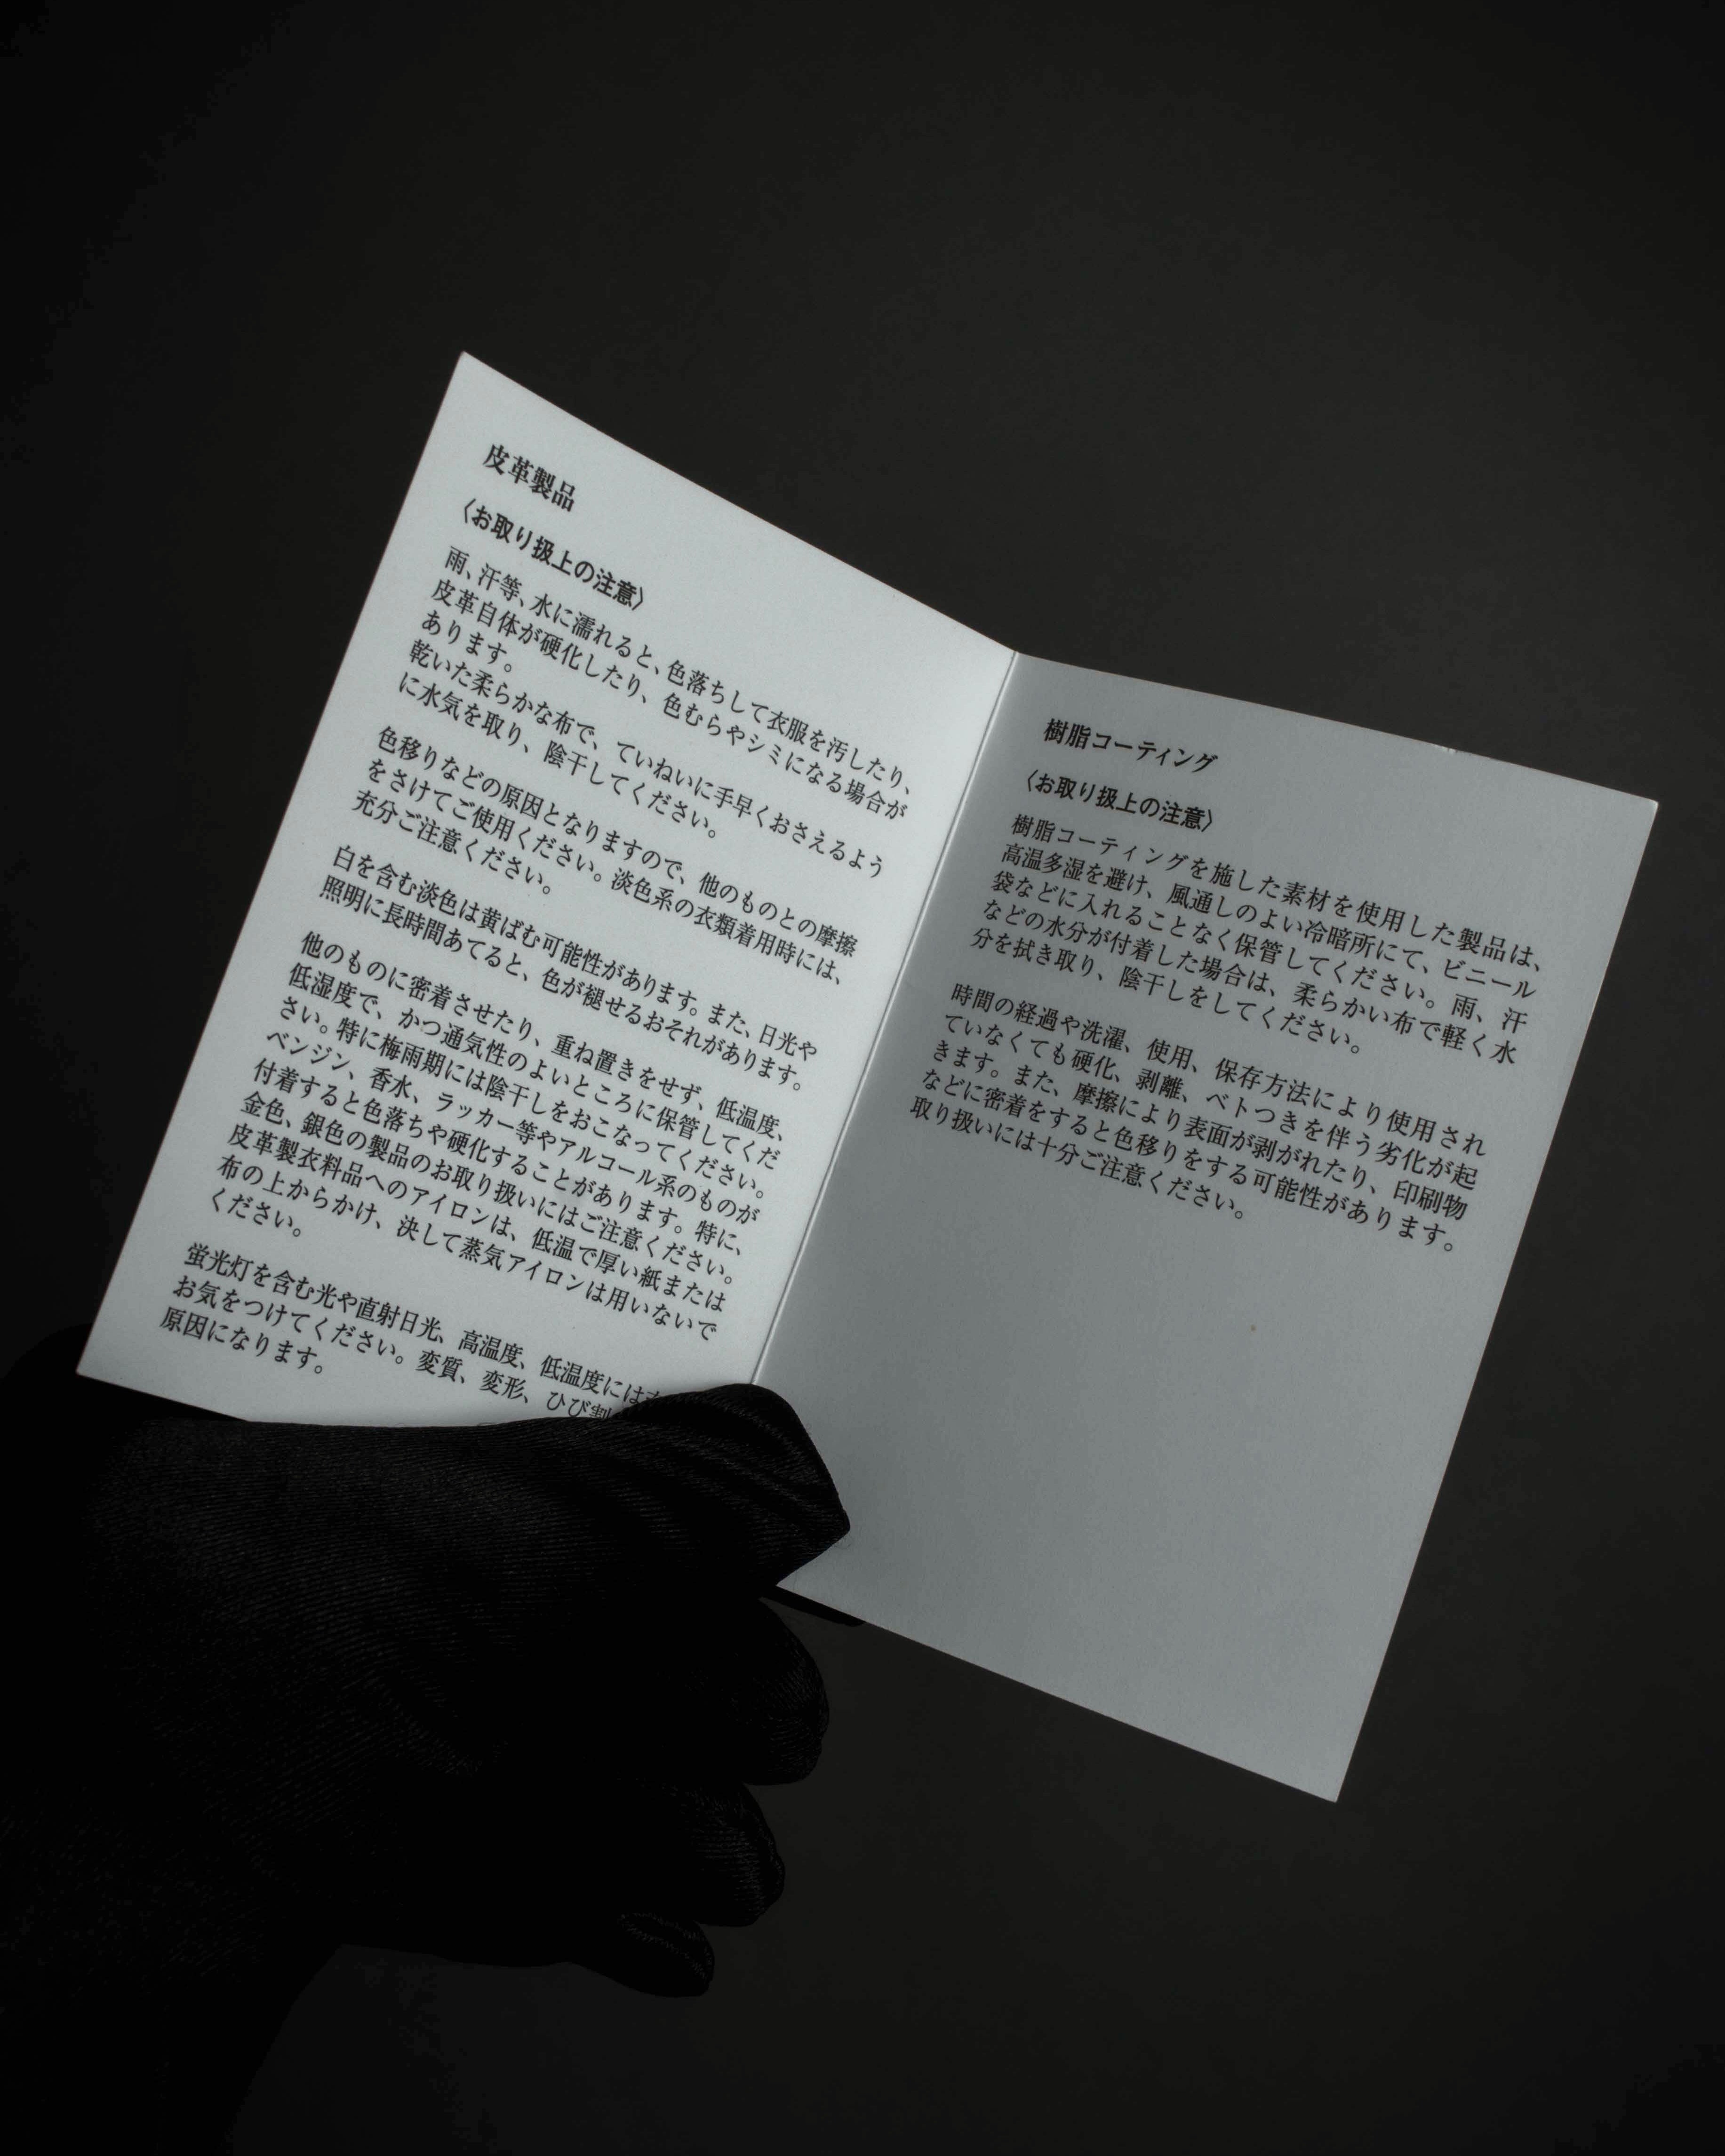 皮革製品
〈お取り扱上の注意〉
雨、汗等、水に濡れると、色落ちして衣服を汚したり、
皮革自体が硬化したり、色むらやシミになる場合が
あります。
乾いた柔らかな布で、ていねいに手早くおさえるよう
に水気を取り、陰干してください。
色移りなどの原因となりますので、他のものとの摩擦
をさけてご使用ください。淡色系の衣類着用時には、
充分ご注意ください。
白を含む淡色は黄ばむ可能性があります。また、日光や
照明に長時間あてると、色が褪せるおそれがあります。
他のものに密着させたり、重ね置きをせず、低温度、
低湿度で、かつ通気性のよいところに保管してくだ
さい。特に梅雨期には陰干しをおこなってください。
ベンジン、香水、ラッカー等やアルコール系のものが
付着すると色落ちや硬化することがあります。特に、
金色、銀色の製品のお取り扱いにはご注意ください。
皮革製衣料品へのアイロンは、低温で厚い紙または
布の上からかけ、決して蒸気アイロンは用いないで
ください。
蛍光灯を含む光や直射日光、高温度、低温度には
お気をつけてください。変質、変形、ひび割
原因になります。
樹脂コーティング
〈お取り扱上の注意〉
樹脂コーティングを施した素材を使用した製品は、
高温多湿を避け、風通しのよい冷暗所にて、ビニール
袋などに入れることなく保管してください。雨、汗
などの水分が付着した場合は、柔らかい布で軽く水
分を拭き取り、陰干しをしてください。
時間の経過や洗濯、使用、保存方法により使用され
ていなくても硬化、剥離、ベトつきを伴う劣化が起
きます。また、摩擦により表面が剥がれたり、印刷物
などに密着をすると色移りをする可能性があります。
取り扱いには十分ご注意ください。